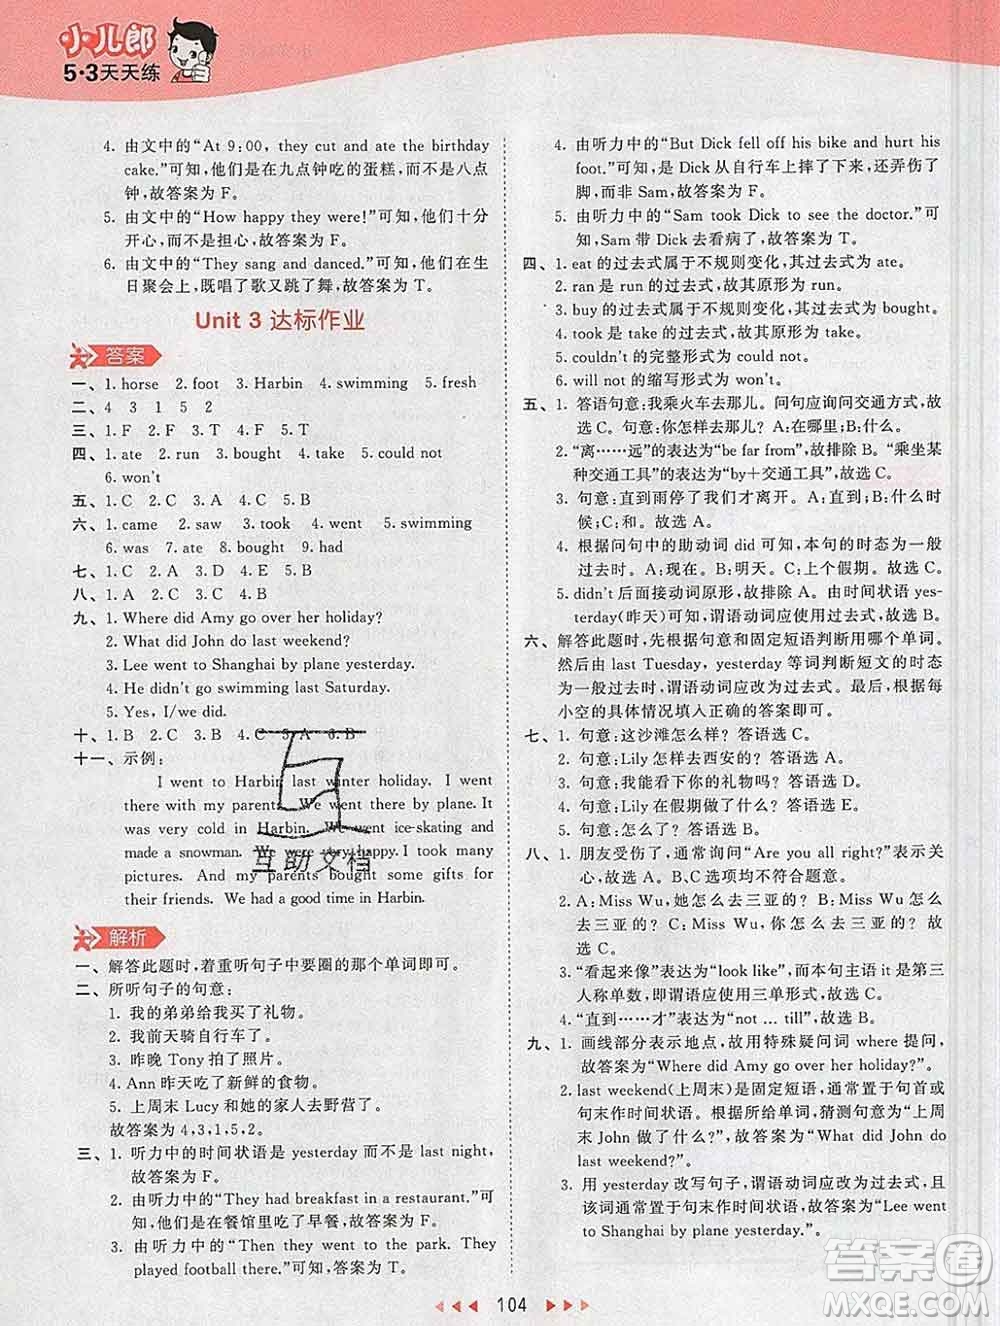 小儿郎
5·3天天练
4. 由文中的“At 9:00, they cut and ate the birthday
cake.”可知,他们是在九点钟吃的蛋糕,而不是八点
钟,故答案为 F。
5. 由文中的“How happy they were!”可知,他们十分
开心,而不是担心,故答案为 F。
6. 由文中的“They sang and danced.”可知,他们在生
日聚会上,既唱了歌又跳了舞,故答案为 T。
Unit 3 达标作业
答案
一、1. horse 2. foot 3. Harbin 4. swimming 5. fresh
二、4 3 1 5 2
三、1. F 2. F 3. T 4. F 5. T
四、1. ate 2. run 3. bought 4. take 5. could not
6. won't
五、1. C 2. C 3. A 4. C 5. B
六、1. came 2. saw 3. took 4. went 5. swimming
6. was 7. ate 8. bought 9. had
七、1. C 2. A 3. D 4. E 5. B
八、1. A 2. C 3. A 4. C
九、1. Where did Amy go over her holiday?
2. What did John do last weekend?
3. Lee went to Shanghai by plane yesterday.
4. He didn't go swimming last Saturday.
5. Yes, I/we did.
十、1. B 2. C 3. B 4. C 5. A 6. B
十一、示例:
I went to Harbin last winter holiday. I went
there with my parents. We went there by plane. It
was very cold in Harbin. We went ice-skating and
made a snowman. We were very happy. I took some
pictures. And my parents bought some gifts for
their friends. We had a good time in Harbin.
互助文档
解析
一、解答此题时,着重听句子中要圈的那个单词即可。
二、所听句子的句意:
1. 我的弟弟给我买了礼物。
2. 我前天骑自行车了。
3. 昨晚 Tony 拍了照片。
4. Ann 昨天吃了新鲜的食物。
5. 上周末 Lucy 和她的家人去野营了。
故答案为 4,3,1,5,2。
三、1. 听力中的时间状语是 yesterday 而不是 last night,
故答案为 F。
2. 由听力中的“They had breakfast in a restaurant.”可
知,他们是在餐馆里吃了早餐,故答案为 F。
3. 由听力中的“Then they went to the park. They
played football there.”可知,故答案为 T。
4. 由听力中的“But Dick fell off his bike and hurt his
foot.”可知,是 Dick 从自行车上摔了下来,还弄伤了
脚,而非 Sam,故答案为 F。
5. 由听力中的“Sam took Dick to see the doctor.”可
知,Sam 带 Dick 去看病了,故答案为 T。
四、1. eat 的过去式属于不规则变化,其过去式为 ate。
2. ran 是过去式,故其原形为 run。
3. buy 的过去式属于不规则变化,其过去式为 bought。
4. took 是 take 的过去式,故其原形为 take。
5. couldn't 的完整形式为 could not。
6. will not 的缩写形式为 won't。
五、1. 答语句意:我乘火车去那儿。问句应询问交通方式,故
选 C。句意:你怎样去那儿? A:在哪里;B:什么。
2. “离……远”的表达为“be far from”,故排除 B。“乘坐某
种交通工具”的表达为“by+交通工具”,故选 C。
3. 句意:直到雨停了我们才离开。A:直到;B:什么时
候;C:和。故选 A。
4. 根据问句中的助动词 did 可知,本句的时态为一般
过去时。A:今天。B:明天。C:上个假期。故选 C。
5. didn't 后面接动词原形,故排除 A。由时间状语 yes-
terday(昨天)可知,谓语动词应使用过去式,故选 B。
六、解答此题时,先根据句意和固定短语判断用哪个单词。
然后由 last Tuesday, yesterday 等词判断短文的时态
为一般过去时,谓语动词应改为过去式。最后,根据每
小空的具体情况填入正确的答案即可。
七、1. 句意:这沙滩怎么样? 答语选 C。
2. 句意:Lily 怎样去西安的? 答语选 A。
3. 句意:我能看下你的礼物吗? 答语选 D。
4. 句意:Lily 在假期做了什么? 答语选 E。
5. 句意:怎么了? 答语选 B。
八、1. 朋友受伤了,通常询问“Are you all right?”表示关
心,故选 A。B,C 选项均不符合题意。
2. A:Miss Wu 去哪儿了? B:Miss Wu,你怎么去三亚
的? C:Miss Wu 怎么去三亚的? 故
选 C。
3. “看起来像”表达为“look like”,而本句主语 it 是第三
人称单数,故谓语应使用三单形式,故选 A。
4. “直到……才”表达为“not … till”,故选 C。
九、1. 画线部分表示地点,故用特殊疑问词 where 提问,
故答案为“Where did Amy go over her holiday?”。
2. last weekend(上周末)是固定短语,通常置于句首或
句末作时间状语。根据所给单词,猜测句意为“上周
末 John 做了什么?”,故答案为“What did John do
last weekend?”。
3. 用 yesterday 改写句子,谓语动词应改为过去式,且
该词通常置于句末作时间状语,故答案为“Lee went
to Shanghai by plane yesterday.”。
104
答案圈
MXQE.COM